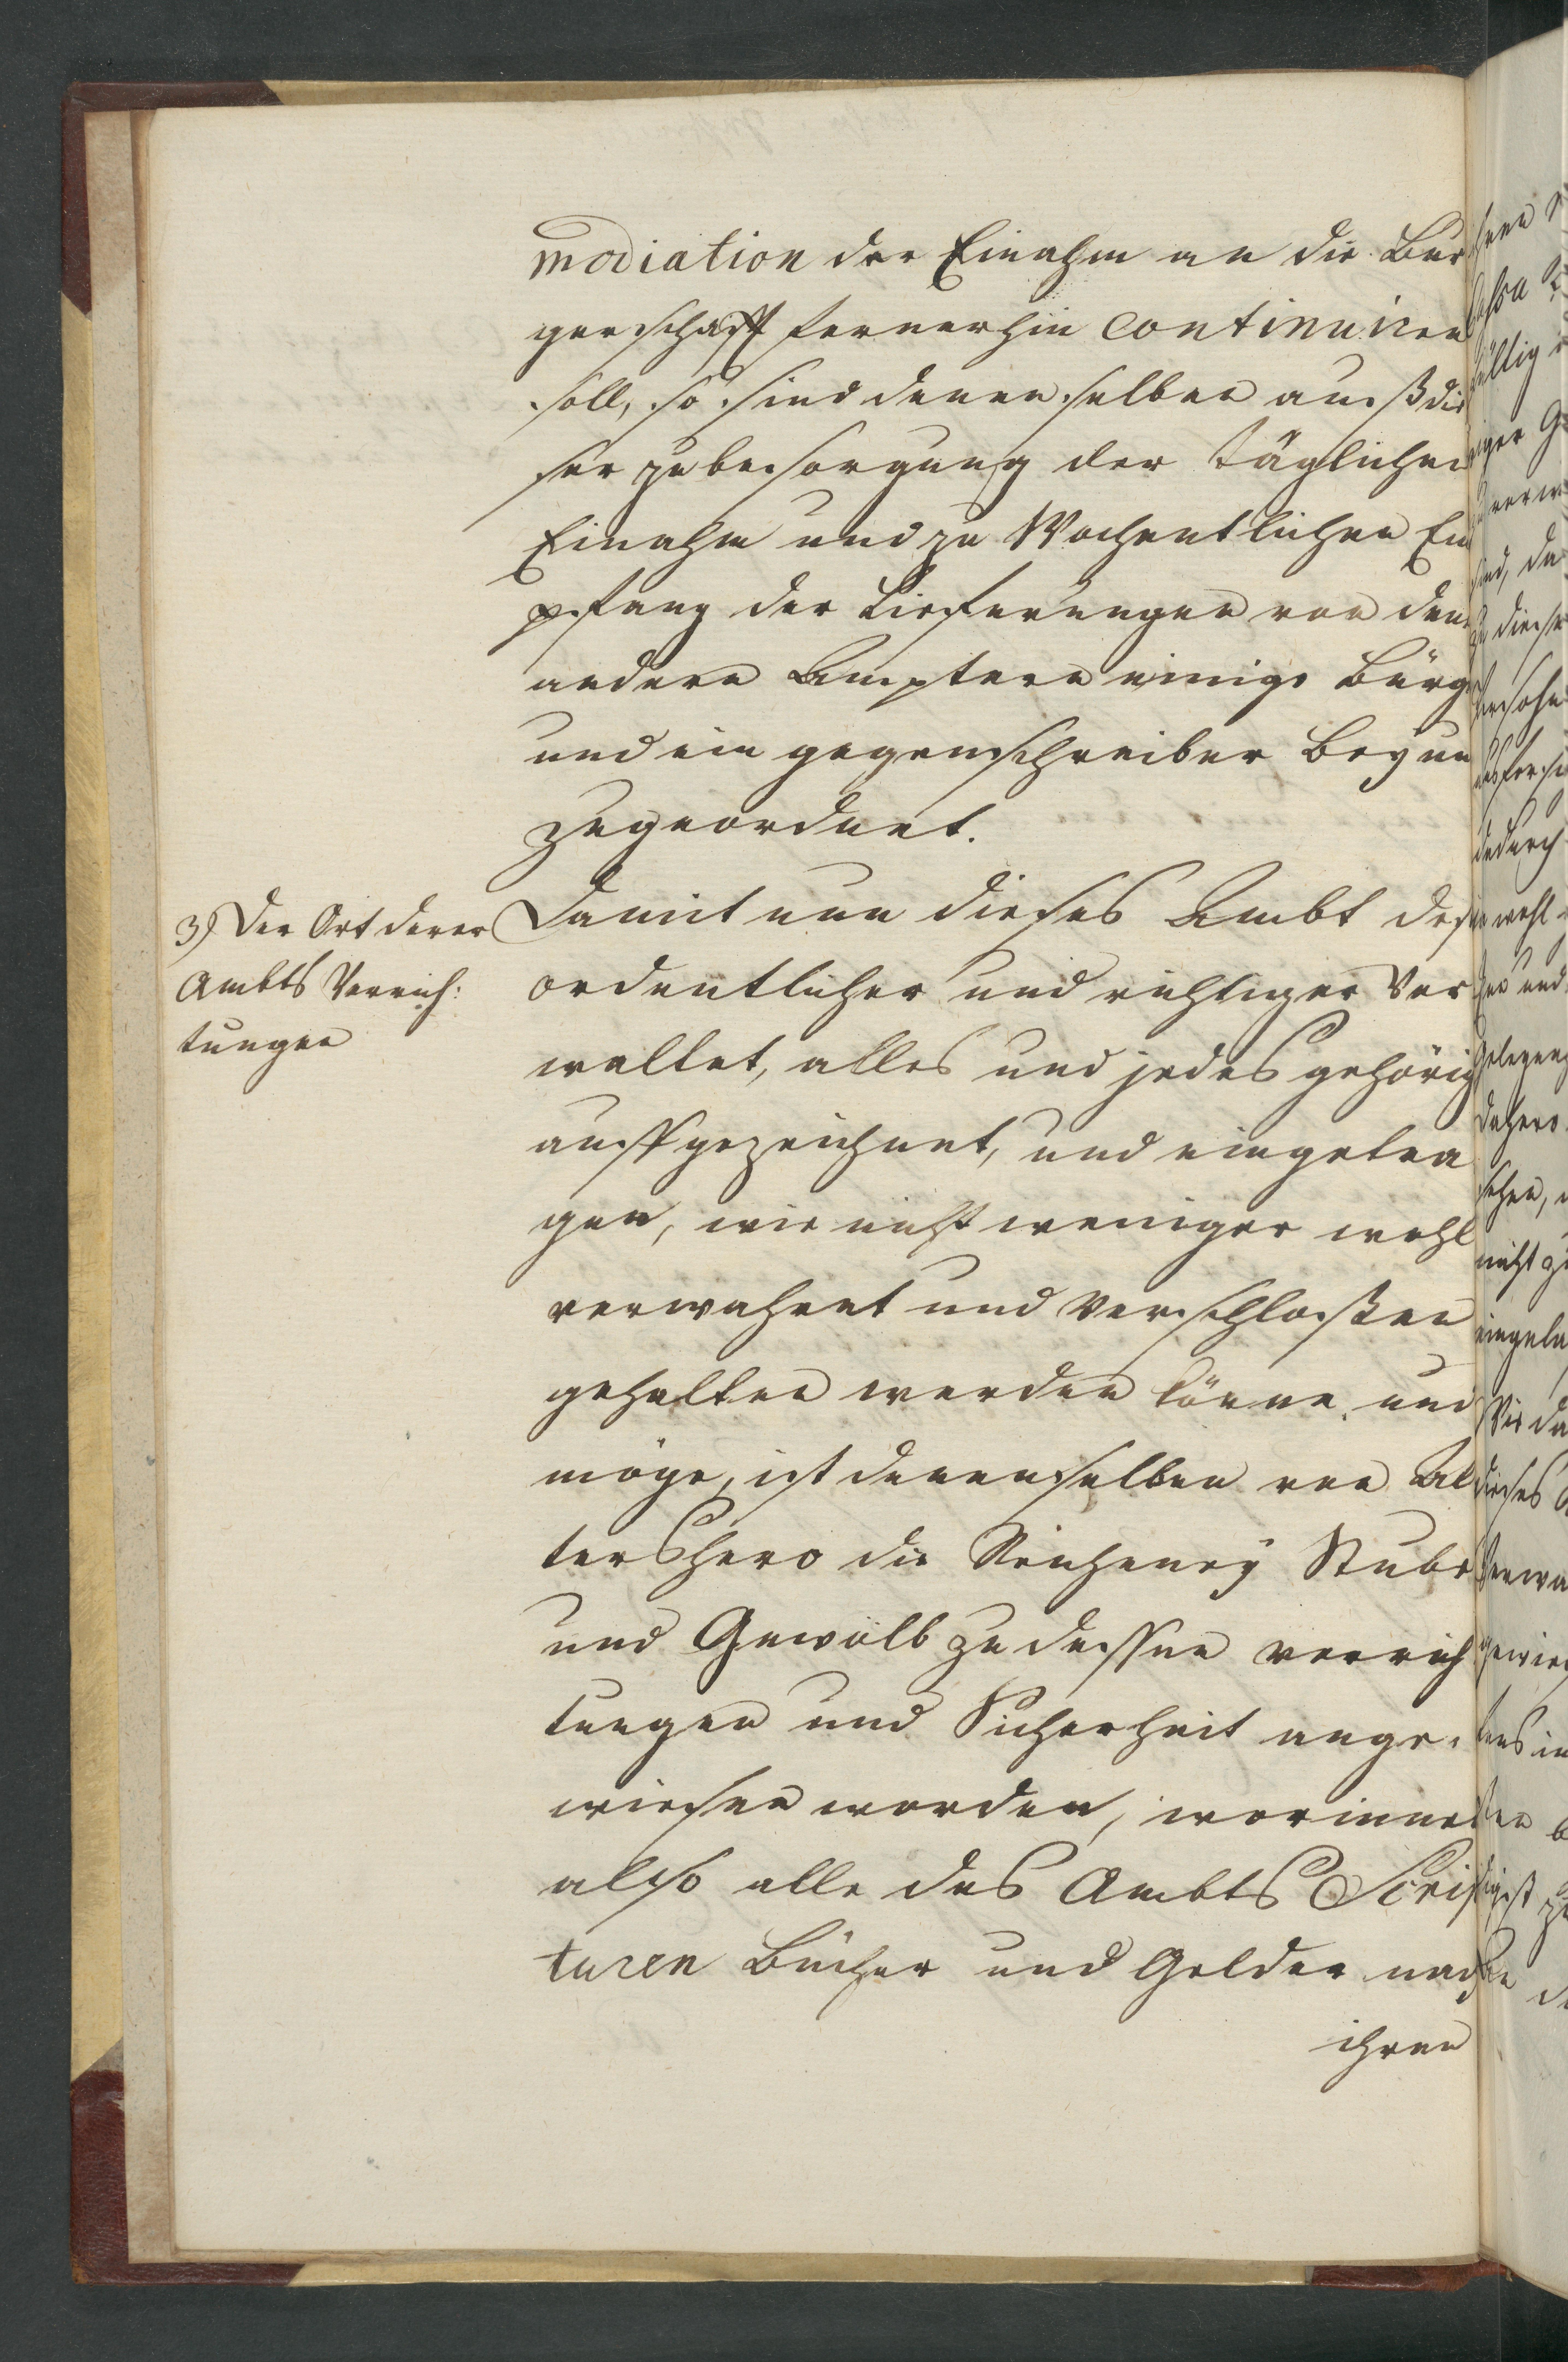 modiation der Einahm an die Bur
gerschafft fernerhin continuiren
soll, so sind denenselben auß die
ser zu besorgung der täglichen
Einahm und zu Wochentlichen Em
pfang der Lieferungen von den
andern Ämptern einige Bürg
und ein gegenschreiber Beÿ und
zugeordnet.
3) Der Ort derer
Ambts Verrich:
tungen
Damit nun dieses Ambt desto
ordentlicher und richtiger Ver
waltet, alles und jedes gehörig
auffgezeichnet, und eingetra
gen, wie nicht weniger wohl
verwahret und Verschloßen
gehalten werden könne und
möge, ist denenselben von Al
tershero die Recheneÿ Stube
und Gewölb zu dessen verrich
tungen und Sicherheit ange-
wiesen worden, worinnen
also alle des Ambts Scrip
turen Bücher und Gelder nach
ihren